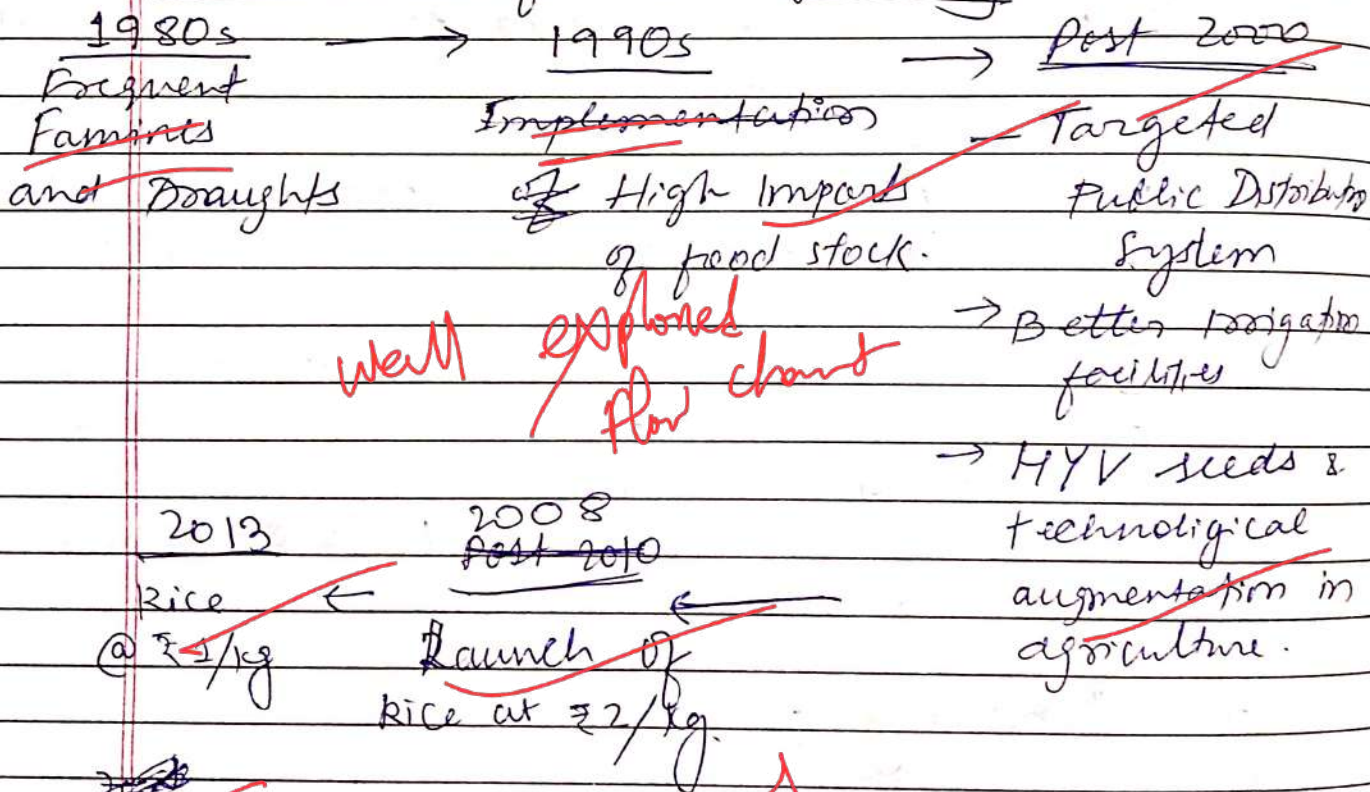 1980s → 1990s → Post 2000
Frequent
Famines
and Draughts
Implementation
of High Imports
of food stock.
- Targeted
Public Distributio
System
→ Better irrigation
facilities
→ HYV seeds &
technoligical
augmentation in
agriculture.
well exploned
flow chart
←
2008
Post 2010
Launch of
Rice at ₹2/kg.
←
2013
Rice
@ ₹1/kg